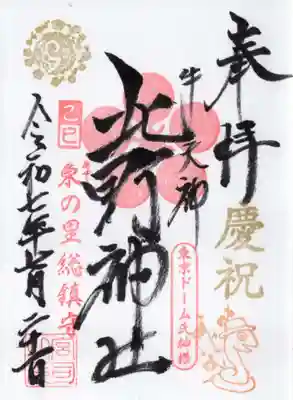 奉拝
慶祝
牛天神
北野神社
東京ドーム氏神様
己巳
東の里総鎮守
令和七年